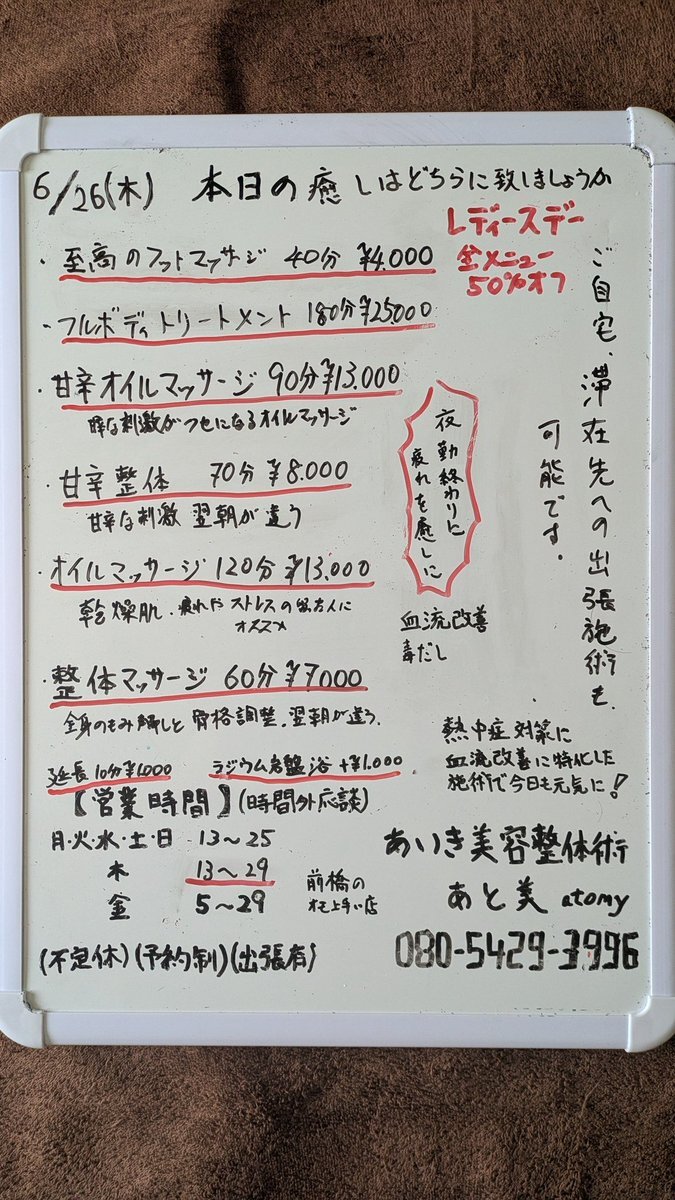 6/26(木) 本日の癒しはどちらに致しましょうか
レディースデー
全メニュー
50%オフ
・至高のフットマッサージ 40分 ¥4,000
・フルボディトリートメント 180分 ¥25,000
・甘辛オイルマッサージ 90分 ¥13,000
な刺激がクセになるオイルマッサージ
・甘辛整体 70分 ¥8,000
甘辛な刺激 翌朝が違う
・オイルマッサージ 120分 ¥13,000
乾燥肌、疲れやストレスの
オススメ
・整体マッサージ 60分 ¥7000
全身のもみ解しと骨格調整、翌朝が違う。
延長10分¥1,000 ラジウム岩盤浴 +¥1,000
ご自宅、滞在先への出張施術も
可能です。
夜勤終わりに
疲れを癒しに
血流改善
毒だし
熱中症対策に
血流改善に特化した
施術で今日も元気に!
【営業時間】(時間外応談)
月・火・水・土・日 13~25
木 13~29
金 5~29
前橋の
オモ上手い店
(不定休)(予約制)(出張有)
あいき美容整体術
あと美 atomy
080-5429-3996